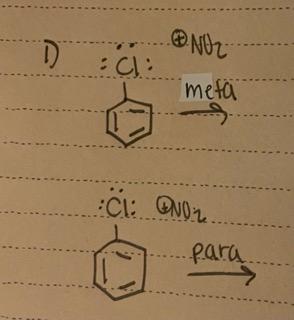 1)
:Cl: ⊕NO₂
meta
:Cl: ⊕NO₂
para